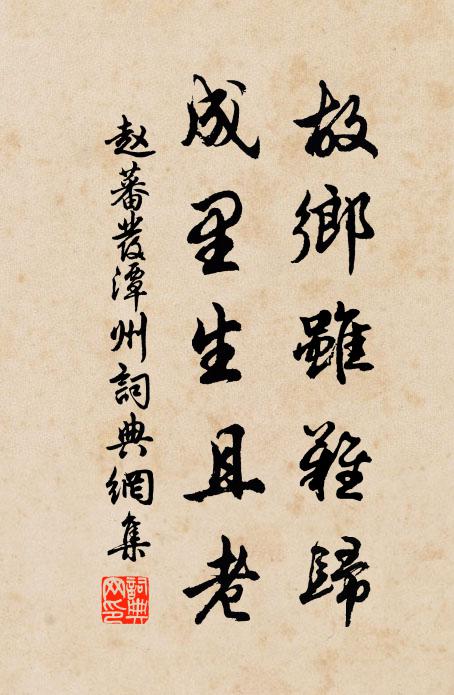 故鄉雖難歸
成里生且老
赵蕃發潭州詞典網集
詞典